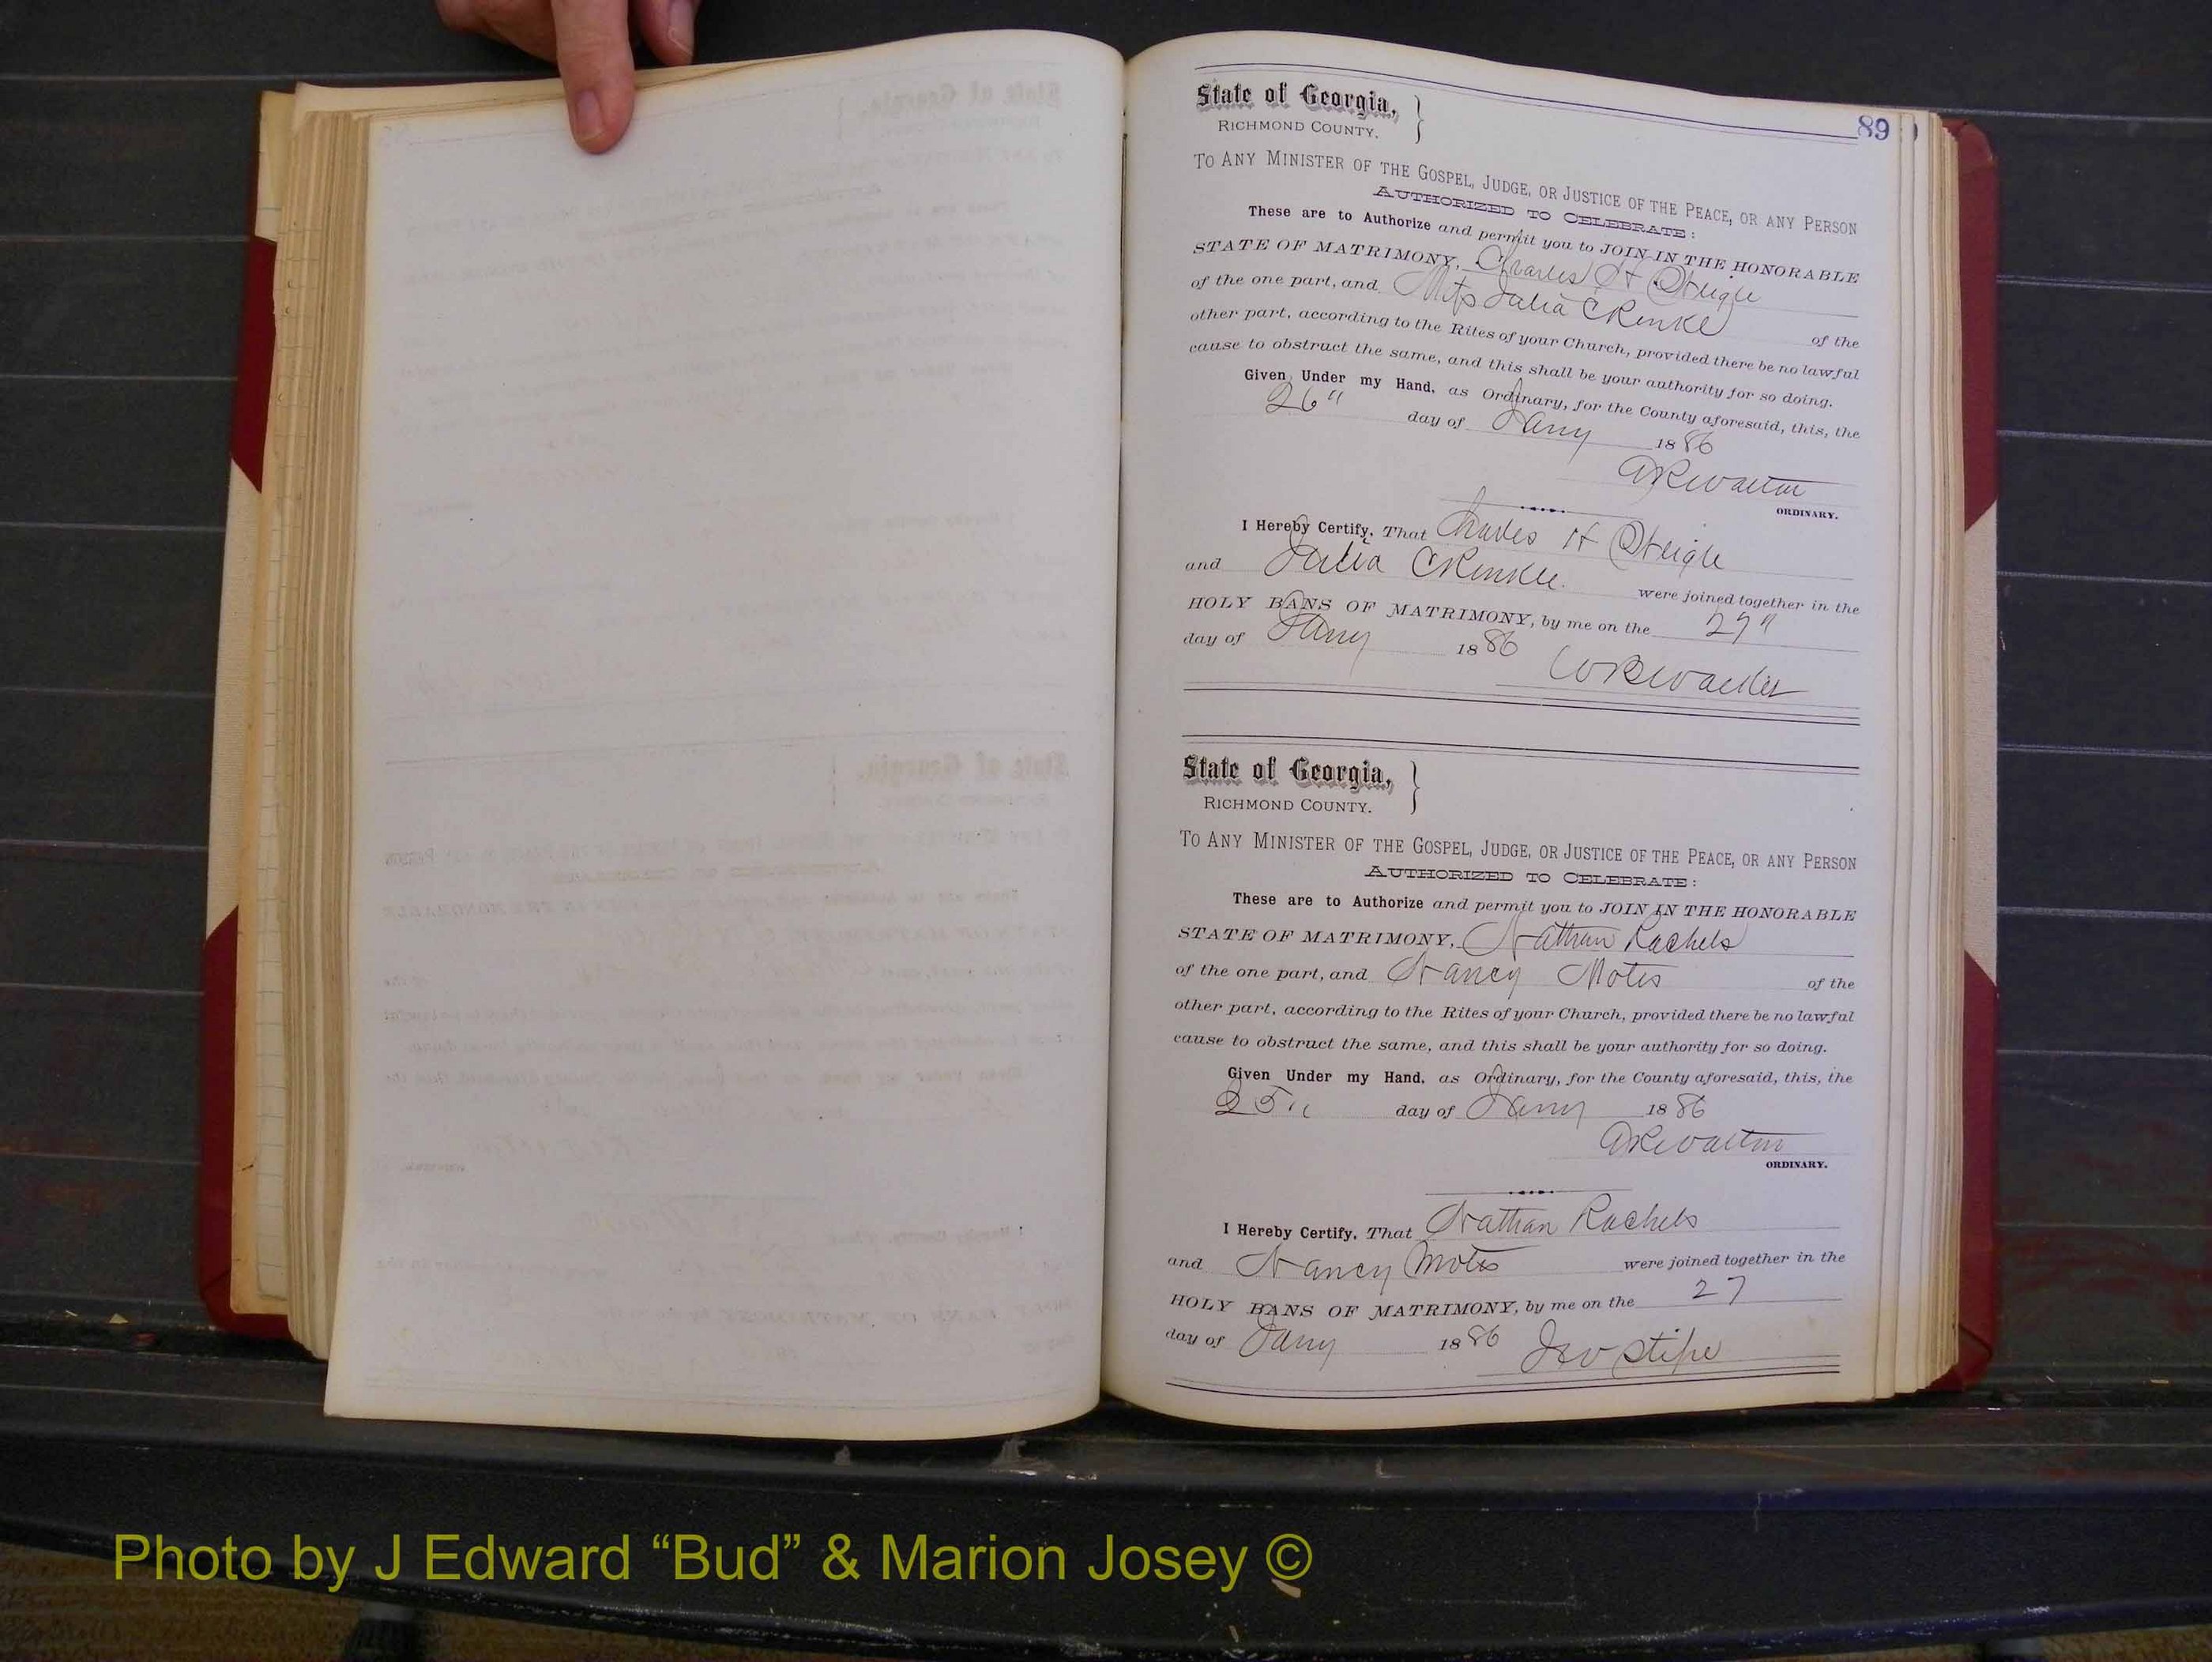 89
State of Georgia,
RICHMOND COUNTY.
TO ANY MINISTER OF THE GOSPEL, JUDGE, OR JUSTICE OF THE PEACE, OR ANY PERSON
AUTHORIZED TO CELEBRATE:
These are to Authorize and permit you to JOIN IN THE HONORABLE
STATE OF MATRIMONY, Charles H Steigle
of the one part, and Miss Julia C Renkl of the
other part, according to the Rites of your Church, provided there be no lawful
cause to obstruct the same, and this shall be your authority for so doing.
Given Under my Hand, as Ordinary, for the County aforesaid, this, the
26" day of Jany 1886
ORDINARY.
I Hereby Certify, That Charles H Steigle
and Julia C were joined together in the
HOLY BANS OF MATRIMONY, by me on the 27"
day of Jany 1886
State of Georgia,
RICHMOND COUNTY.
TO ANY MINISTER OF THE GOSPEL, JUDGE, OR JUSTICE OF THE PEACE, OR ANY PERSON
AUTHORIZED TO CELEBRATE:
These are to Authorize and permit you to JOIN IN THE HONORABLE
STATE OF MATRIMONY, Nathan Rachels
of the one part, and Nancy Motes of the
other part, according to the Rites of your Church, provided there be no lawful
cause to obstruct the same, and this shall be your authority for so doing.
Given Under my Hand, as Ordinary, for the County aforesaid, this, the
25" day of Jany 1886
ORDINARY.
I Hereby Certify, That Nathan Rachels
and Nancy Motes were joined together in the
HOLY BANS OF MATRIMONY, by me on the 27
day of Jany 1886
Photo by J Edward “Bud” & Marion Josey ©